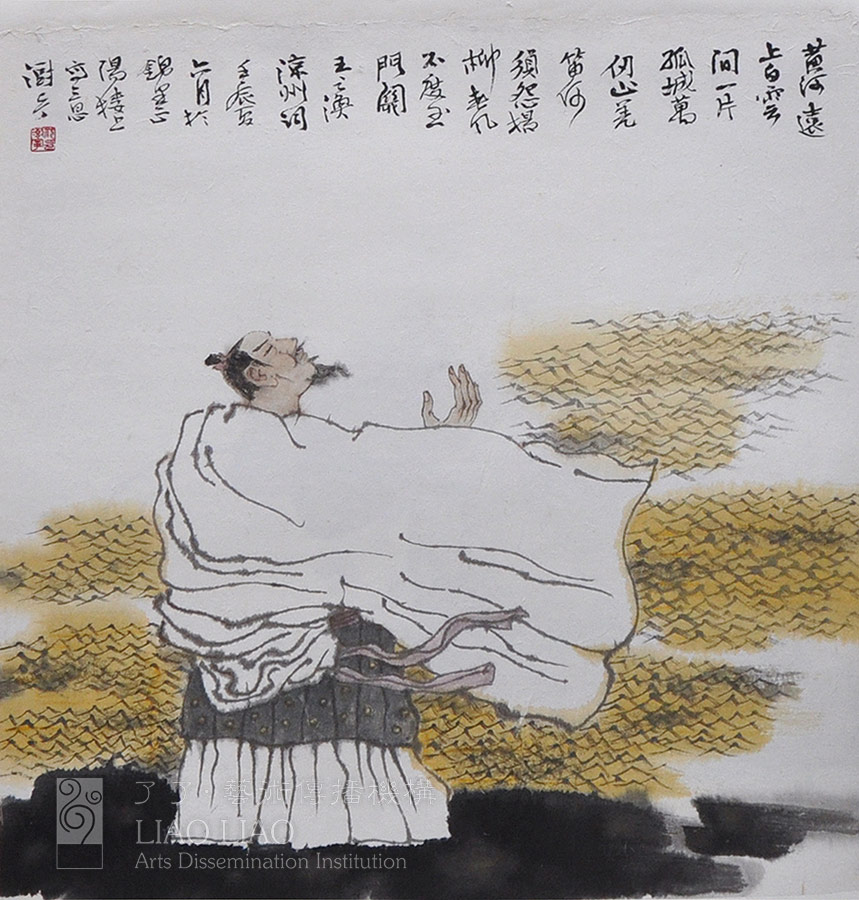 黄河遠
上白雲
间一片
孤城萬
仞山羌
笛何
須怨楊
柳春风
不度玉
門關
王之渙
涼州詞
壬辰
六月於
陽樓上
了了·藝術傳播機構
LIAO LIAO
Arts Dissemination Institution